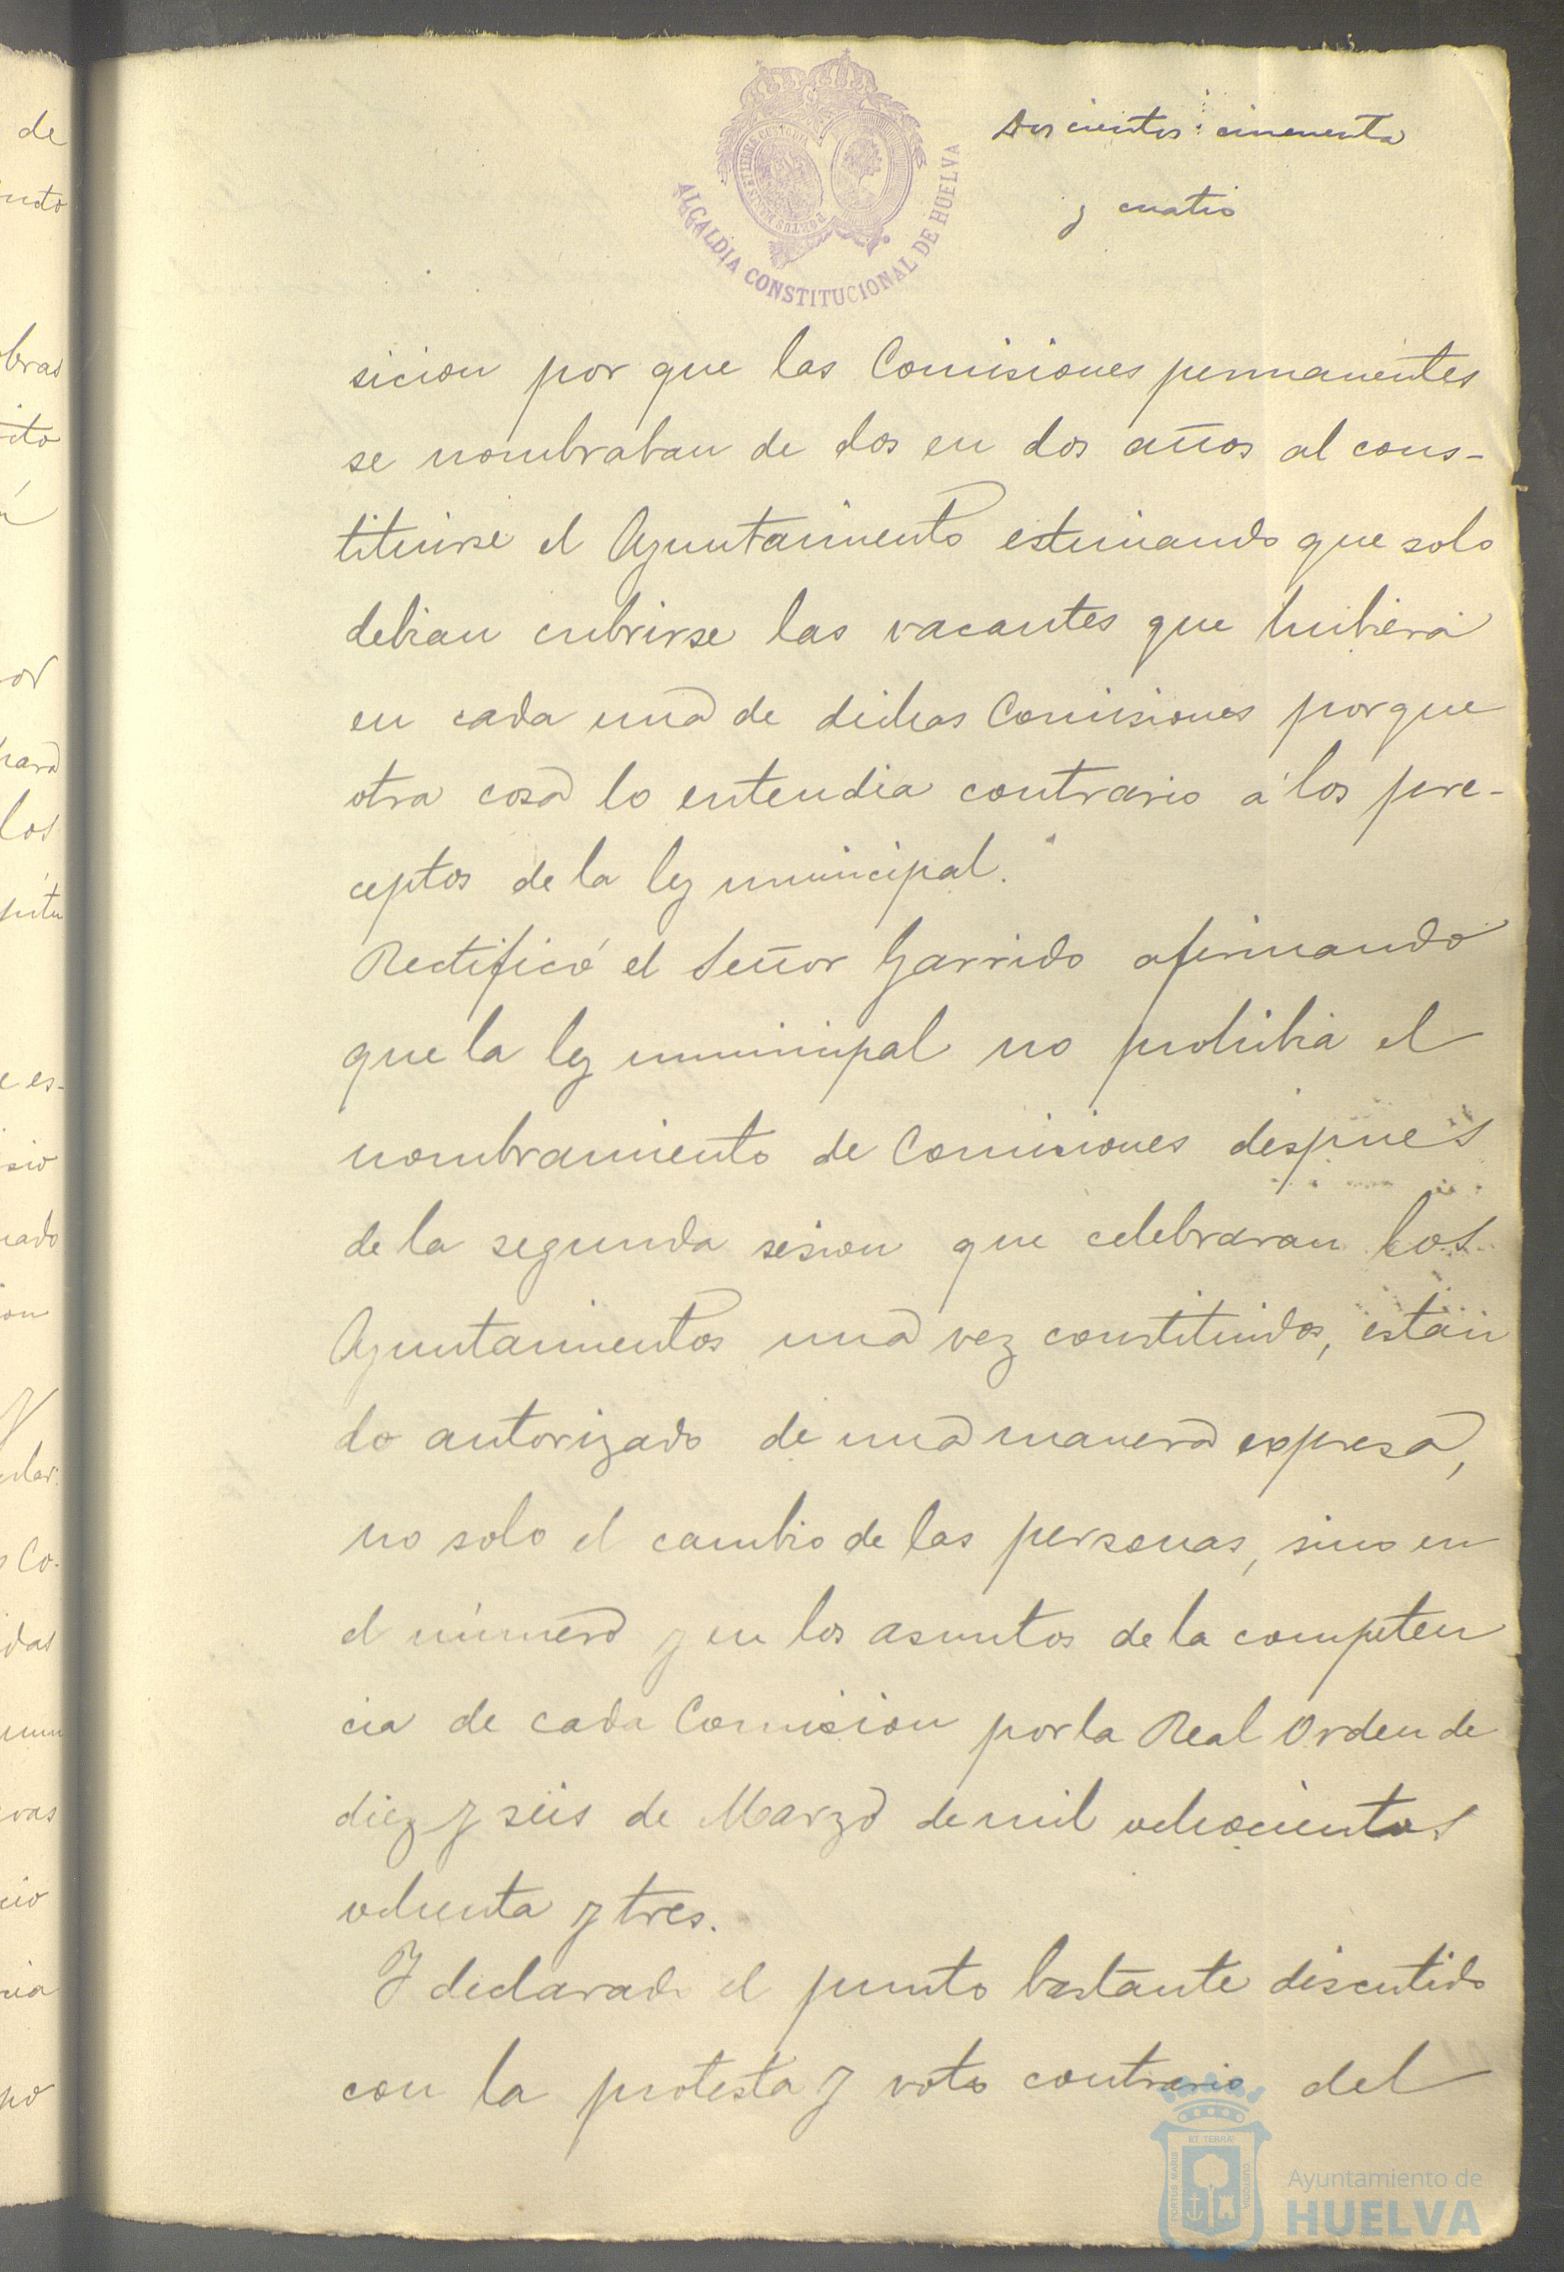 ALCALDIA CONSTITUCIONAL DE HUELVA
Doscientos cincuenta
y cuatro
sicion por que las Comisiones permanentes
se nombraban de dos en dos años al cons-
tituirse el Ayuntamiento estimando que solo
debian cubrirse las vacantes que hubiera
en cada una de dichas Comisiones porque
otra cosa lo entendia contrario á los pre-
ceptos de la ley municipal.
Rectificó el Señor Garrido afirmando
que la ley municipal no prohibia el
nombramiento de Comisiones despues
de la segunda sesion que celebraran los
Ayuntamientos una vez constituidos, estan
do autorizado de una manera expresa,
no solo el cambio de las personas, sino en
el número y en los asuntos de la competen
cia de cada Comision por la Real Orden de
diez y seis de Marzo de mil ochocientos
ochenta y tres.
Y declarado el punto bastante discutido
con la protesta y voto contrario del
Ayuntamiento de
HUELVA